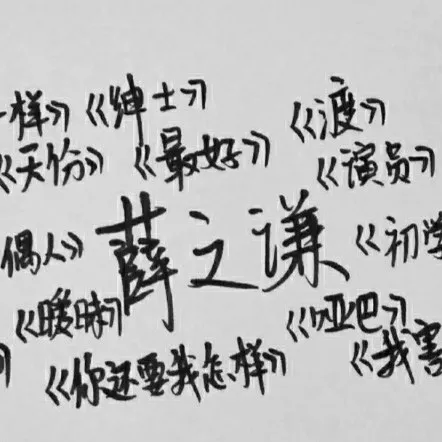 样》《绅士》
《渡》
《天份》《最好》
《演员》
偶人》薛之谦《初学
《暧昧》
《哑巴》
《你还要我怎样》《我害